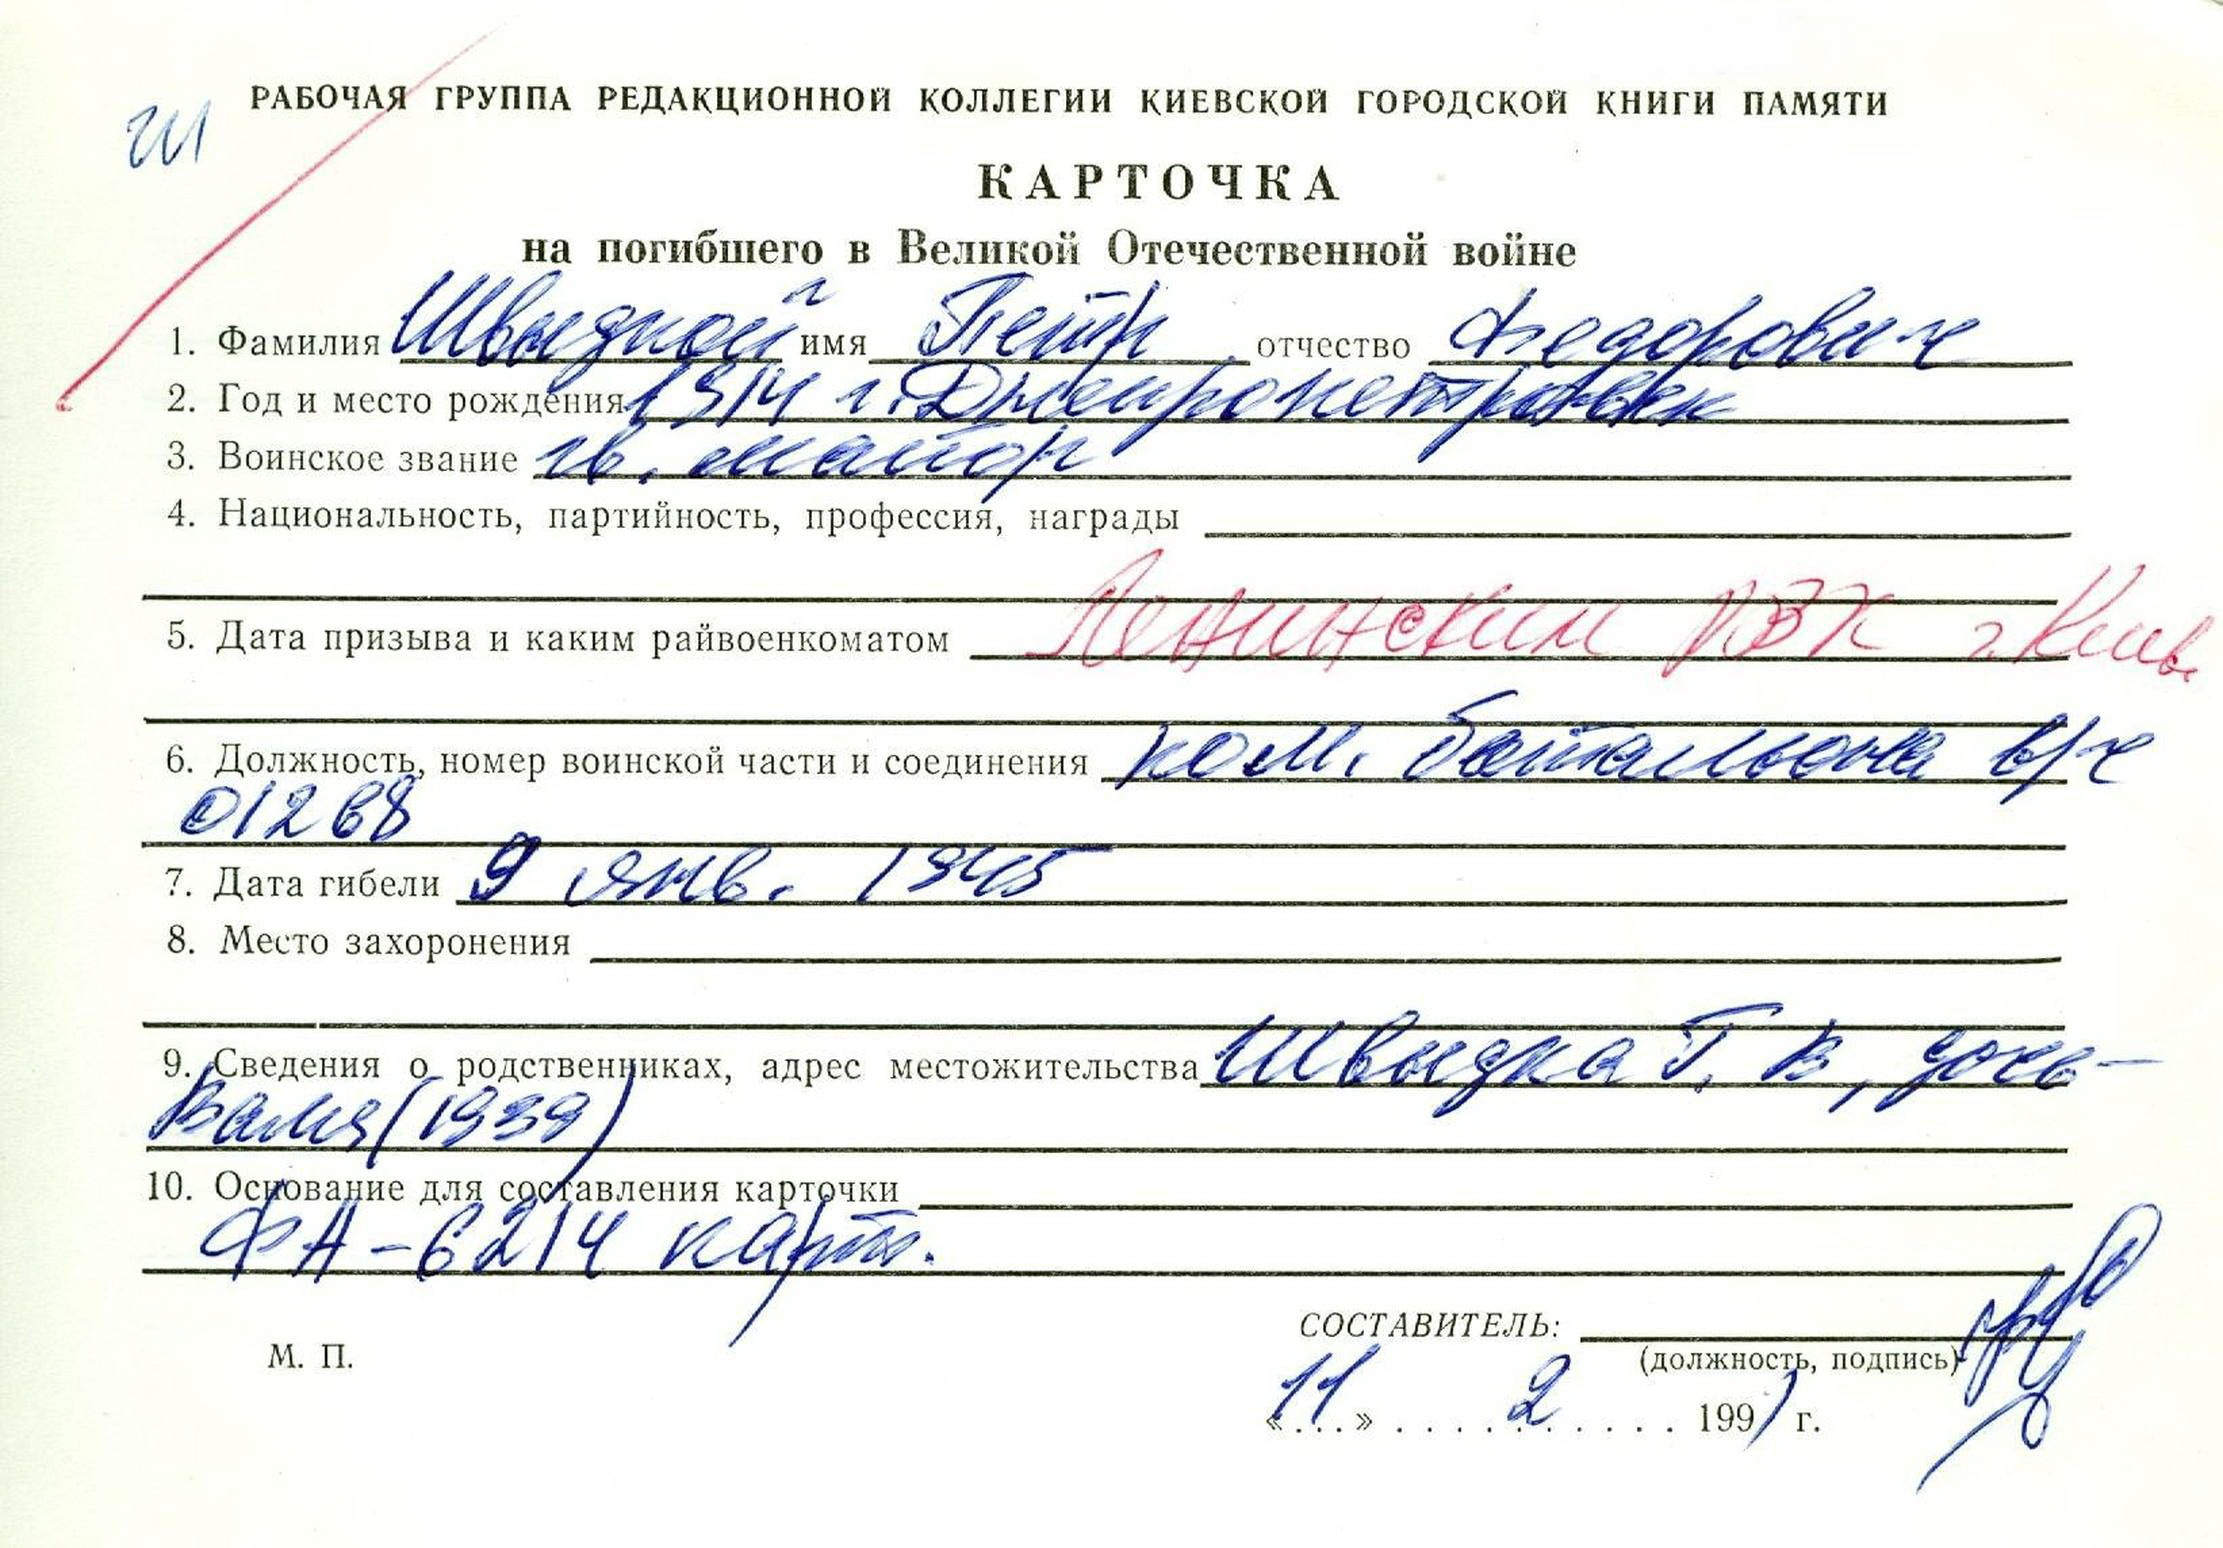 Ш
РАБОЧАЯ ГРУППА РЕДАКЦИОННОЙ КОЛЛЕГИИ КИЕВСКОЙ ГОРОДСКОЙ КНИГИ ПАМЯТИ
КАРТОЧКА
на погибшего в Великой Отечественной войне
1. Фамилия Швыдкой имя Петр отчество Федорович
2. Год и место рождения 1914 г. Днепропетровск
3. Воинское звание гв. майор
4. Национальность, партийность, профессия, награды
5. Дата призыва и каким райвоенкоматом Ленинским РВК г. Киев
6. Должность, номер воинской части и соединения ком. батальона в/ч
01268
7. Дата гибели 9 янв. 1945
8. Место захоронения
9. Сведения о родственниках, адрес местожительства Швыдка Т. В, дочь -
Валя (1939)
10. Основание для составления карточки
ФА-6214 карт.
СОСТАВИТЕЛЬ:
М. П.
(должность, подпись)
«11» 2 1991 г.